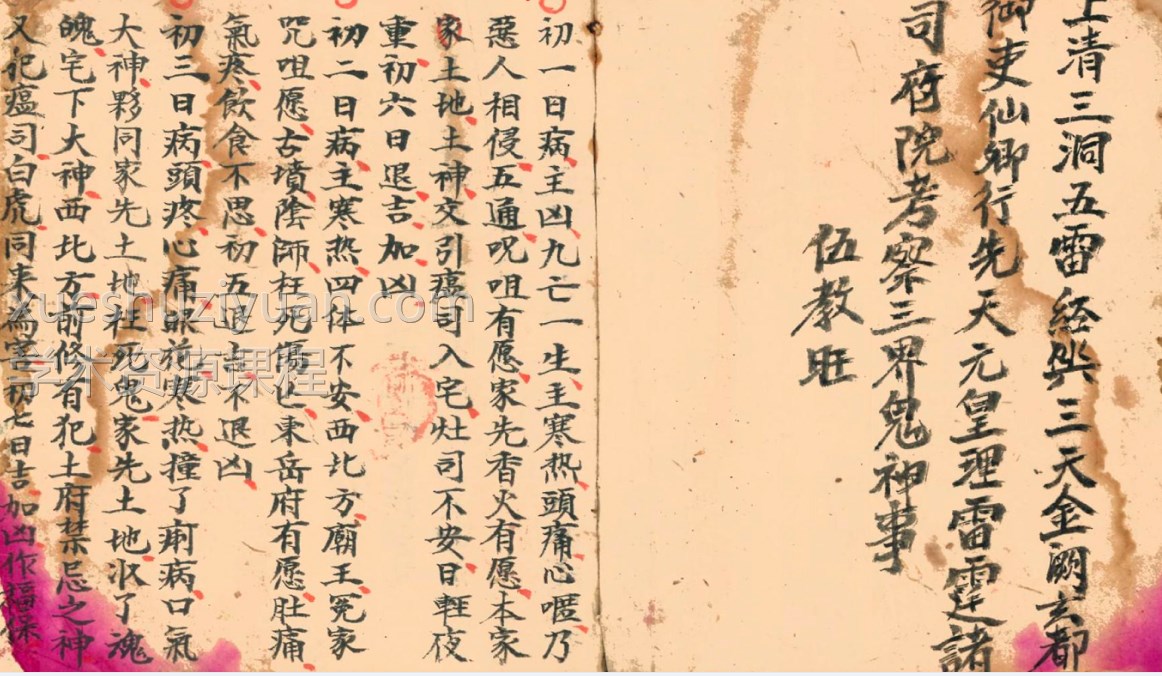 上清三洞五雷经典三天金阙玄都
御吏仙卿行先天元皇理雷霆諸
司府院考察三界鬼神事
伍教旺
初一日病主凶九亡一生主寒热頭痛心嘔乃
惡人相侵五通呪咀有愿家先香火有愿本家
家土地土神交引瘟司入宅灶司不安日輕夜
重初六日退吉加凶
初二日病主寒热四体不安西北方廟王冤家
咒咀愿古墳陰師枉死傷亡東岳府有愿肚痛
氣疼飲食不思初五退吉不退凶
初三日病頭疼心痛眼花寒热撞了痢病口氣
大神夥同家先土地枉死鬼家先土地收了魂
魄宅下大神西北方前修有犯土府禁忌之神
又犯瘟司白虎同来為害初七日吉加凶作福保
xueshuziyuan.com
学术资源课程